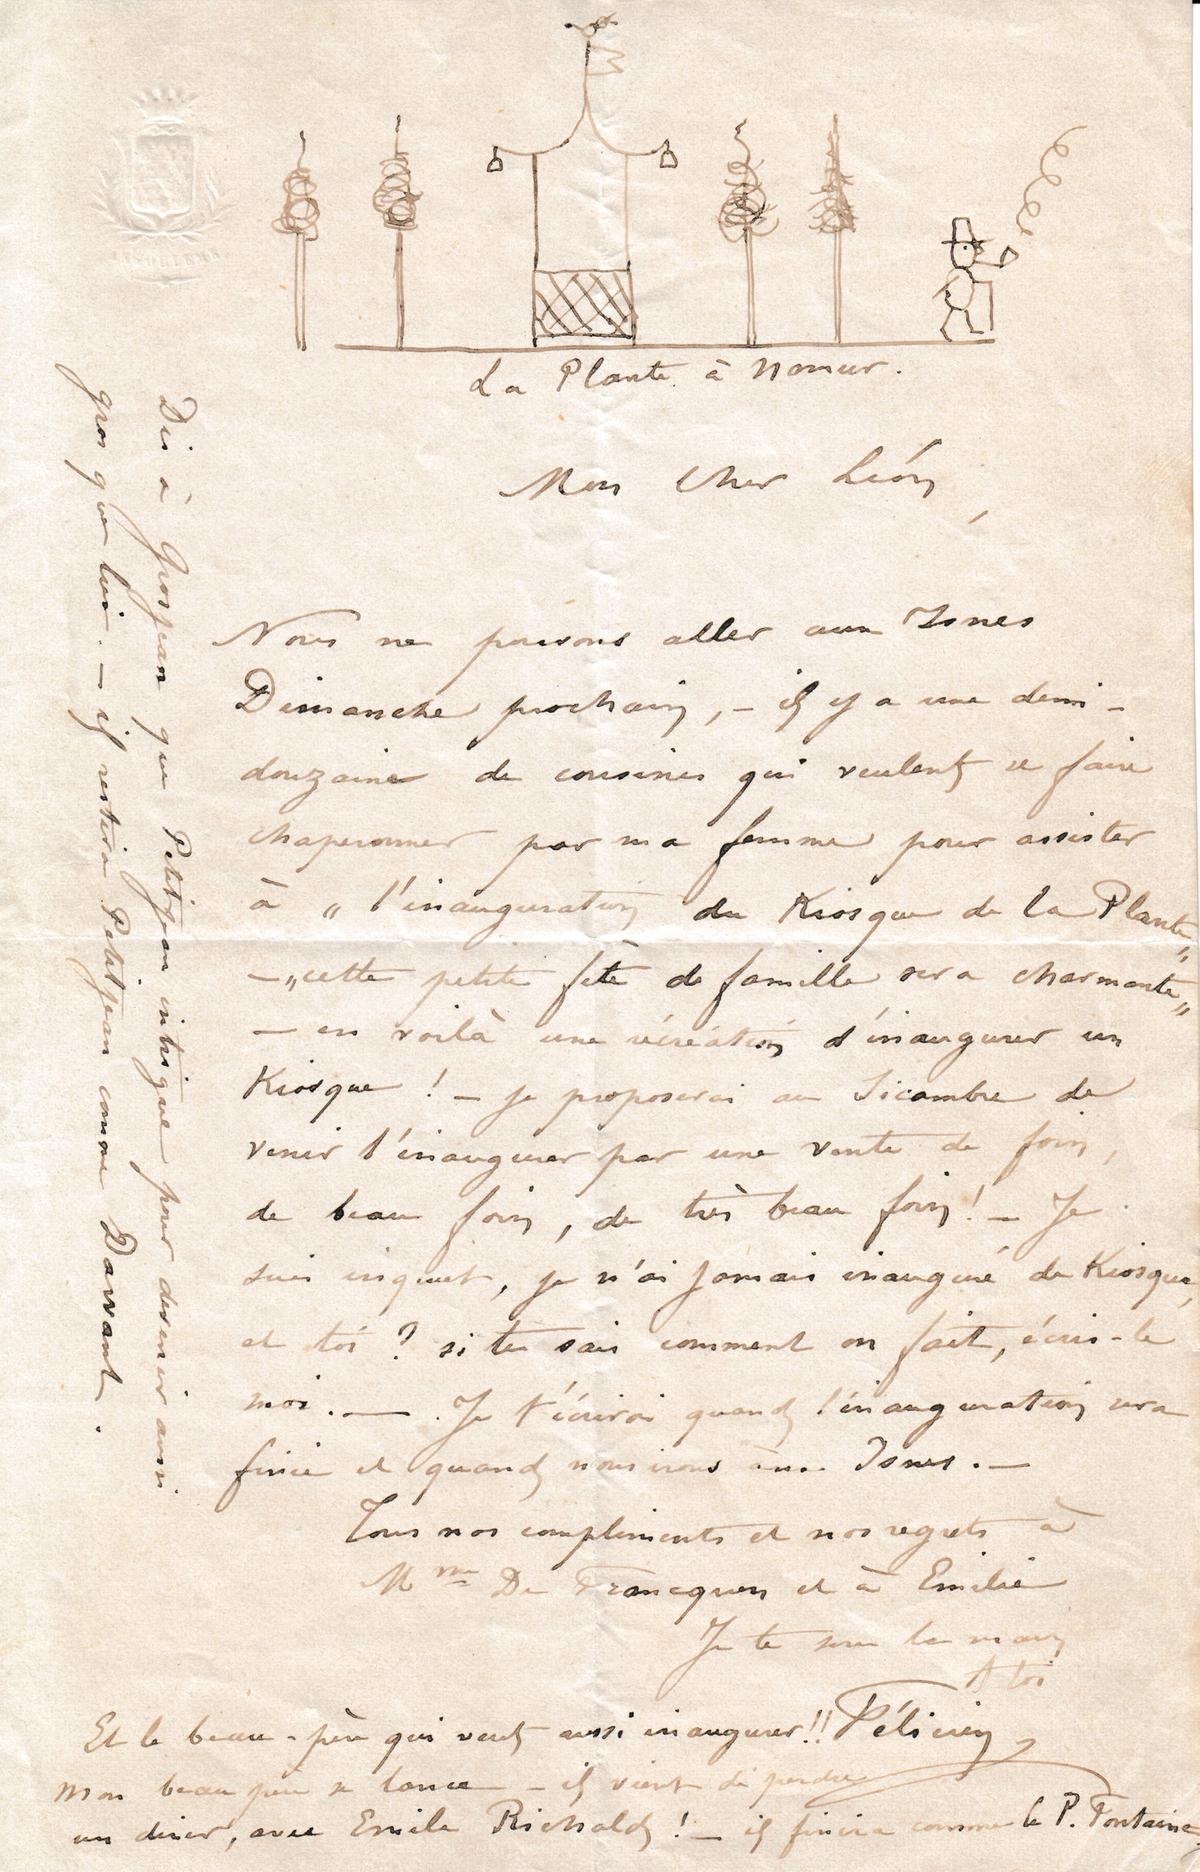 La Plante à Namur.
Mon Cher Léon,
Nous ne pouvons aller aux Isnes
Dimanche prochain, – il y a une demi-
douzaine de cousines qui veulent se faire
chaperonner par ma femme pour assister
à „ l'inauguration du Kiosque de la Plante „
– „ cette petite fête de famille sera charmante „
– en voilà une récréation d'inaugurer un
Kiosque ! – je proposerai au Sicambre de
venir l'inaugurer par une vente de foin,
de beau foin, de très beau foin ! – Je
suis inquiet, je n'ai jamais inauguré de Kiosque,
et toi ? si tu sais comment on fait, écris-le
moi. — Je t'écrirai quand l'inauguration sera
finie et quand nous irons aux Isnes. –
Tous nos compliments et nos regrets à
Mme De Francquen et à Emilie
Je te serre la main
A toi
Félicien
Et le beau-père qui veut aussi inaugurer !!
Mon beau père se lance – il vient de perdre
un diner, avec Emile Richald ! – il finira comme le P. Fontaine.
Dis à Grosjean que Petitjean intrigue pour devenir aussi
gros que lui. – il restera Petitjean comme Davant.